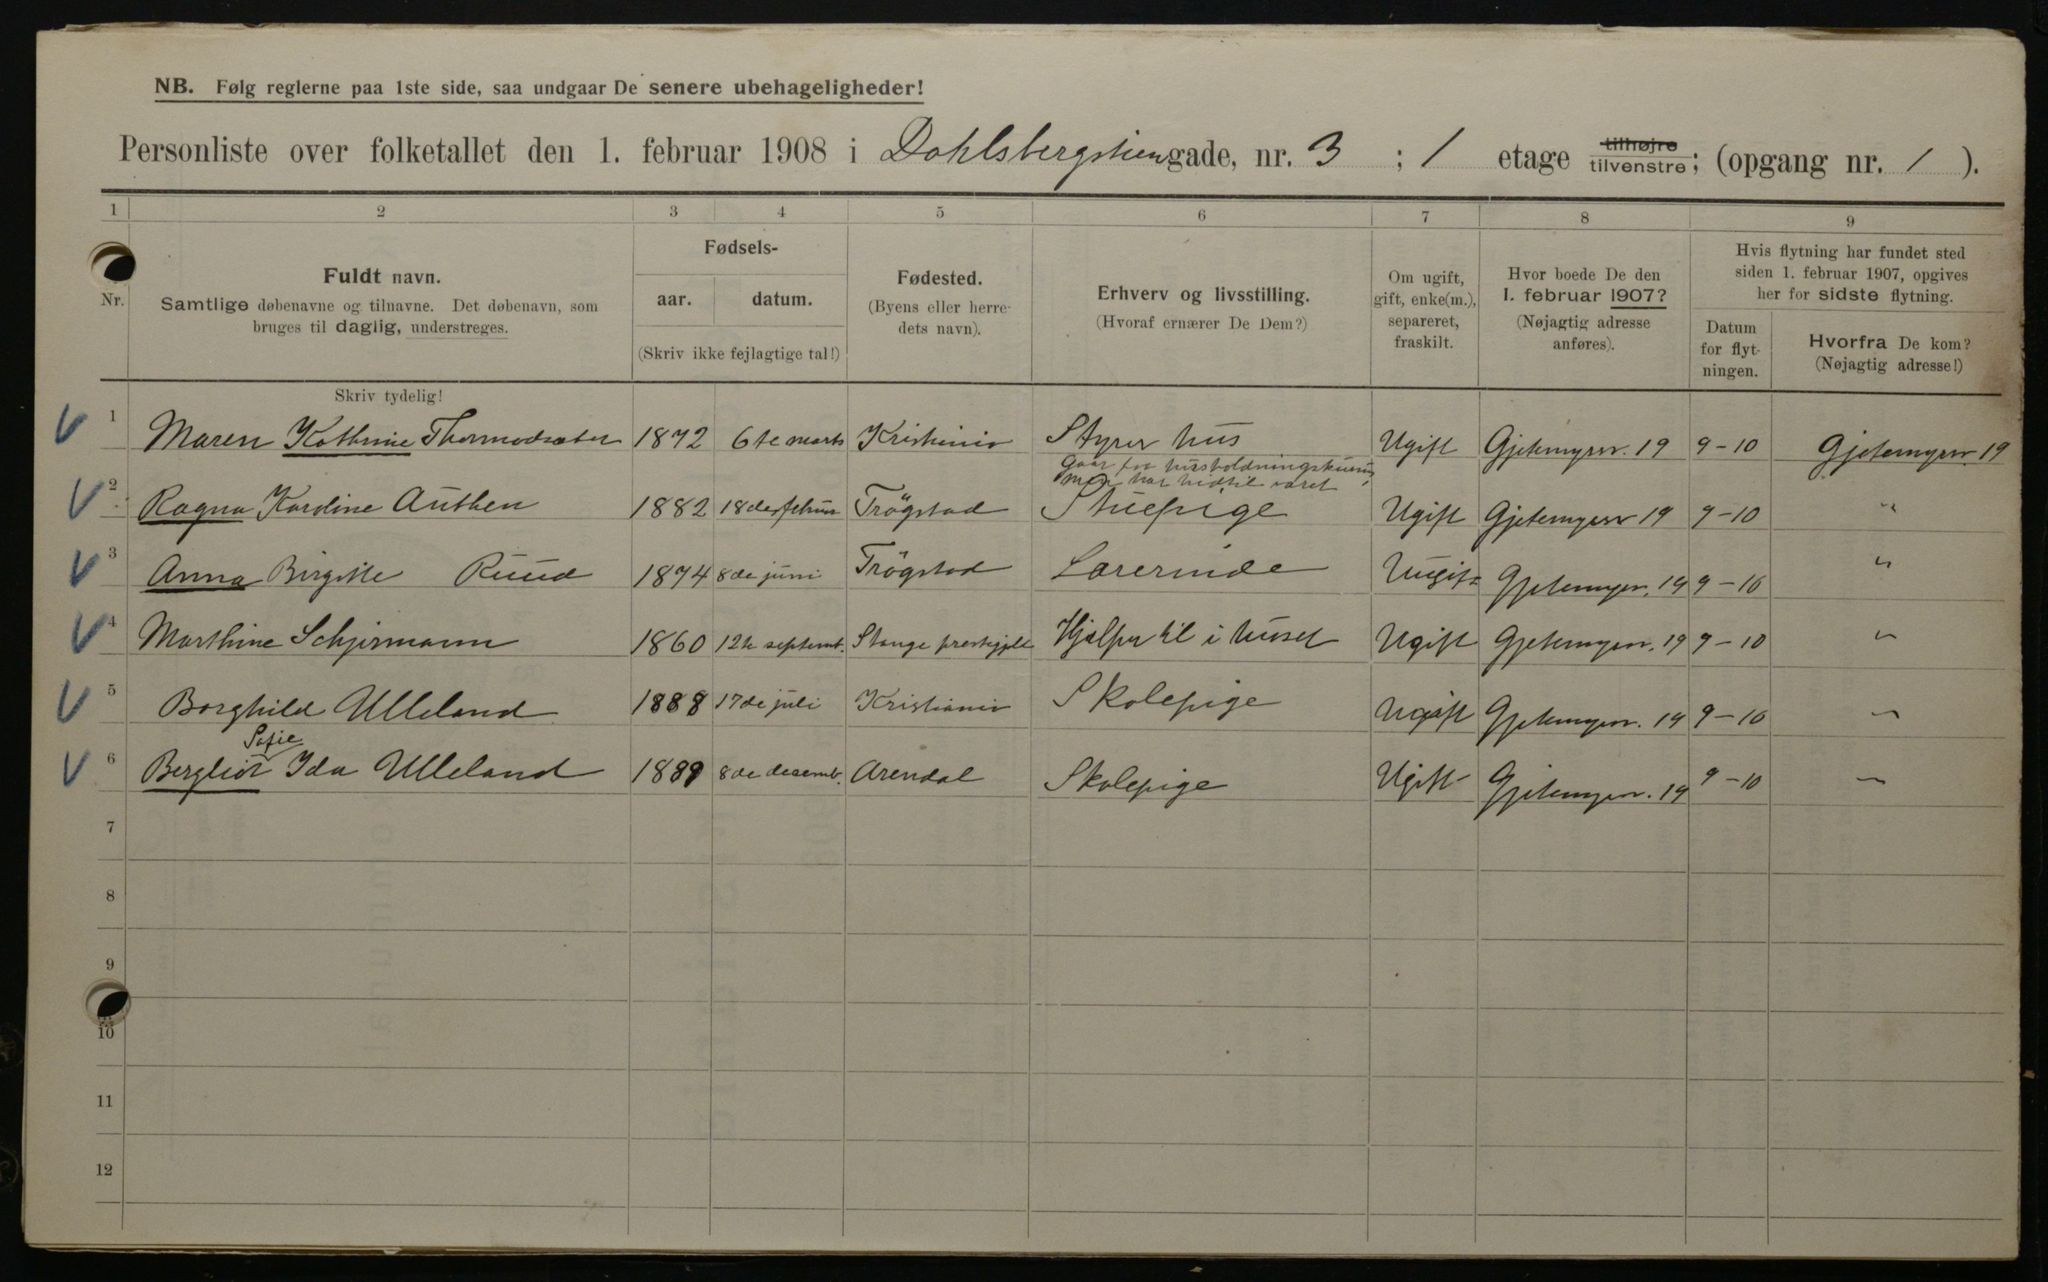 NB. Følg reglerne paa 1ste side, saa undgaar De senere ubehageligheder!
Personliste over folketallet den 1. februar 1908 i Dahlsbergstiengade, nr. 3 ; 1 etage tilhøjre tilvenstre; (opgang nr. 1 ).
1 2 3 4 5 6 7 8 9
Nr.
Fuldt navn.
Samtlige døbenavne og tilnavne. Det døbenavn, som
bruges til daglig, understreges.
Fødsels-
aar. datum.
(Skriv ikke fejlagtige tal!)
Fødested.
(Byens eller herre-
dets navn).
Erhverv og livsstilling.
(Hvoraf ernærer De Dem?)
Om ugift,
gift, enke(m.),
separeret,
fraskilt.
Hvor boede De den
1. februar 1907?
(Nøjagtig adresse
anføres).
Hvis flytning har fundet sted
siden 1. februar 1907, opgives
her for sidste flytning.
Datum
for flyt-
ningen.
Hvorfra De kom?
(Nøjagtig adresse!)
Skriv tydelig!
1 Maren Kathrine Thormodsæter 1872 6te marts Kristiania Styrer hus Ugift Gjetemyrsv. 19 9-10 Gjetemyrsv. 19
Gaar paa husholdningskursus,
men har hidtil været
2 Ragna Karoline Authen 1882 18de februar Trögstad Stuepige Ugift Gjetemyrsv 19 9-10 "
3 Anna Birgitte Ruud 1874 8de juni Trögstad Lærerinde Uugift Gjetemyrsv. 19 9-10 "
4 Marthine Schjirmann 1860 12te septemb. Stange prestegjeld Hjælper til i huset Ugift Gjetemyrsv. 19 9-10 "
5 Borghild Ulleland 1888 17de juli Kristiania Skolepige Ugift Gjetemyrsv. 19 9-10 "
Sofie
6 Bergliot Ida Ulleland 1889 8de desemb. Arendal Skolepige Ugift Gjetemyrsv. 19 9-10 "
7
8
9
10
11
12